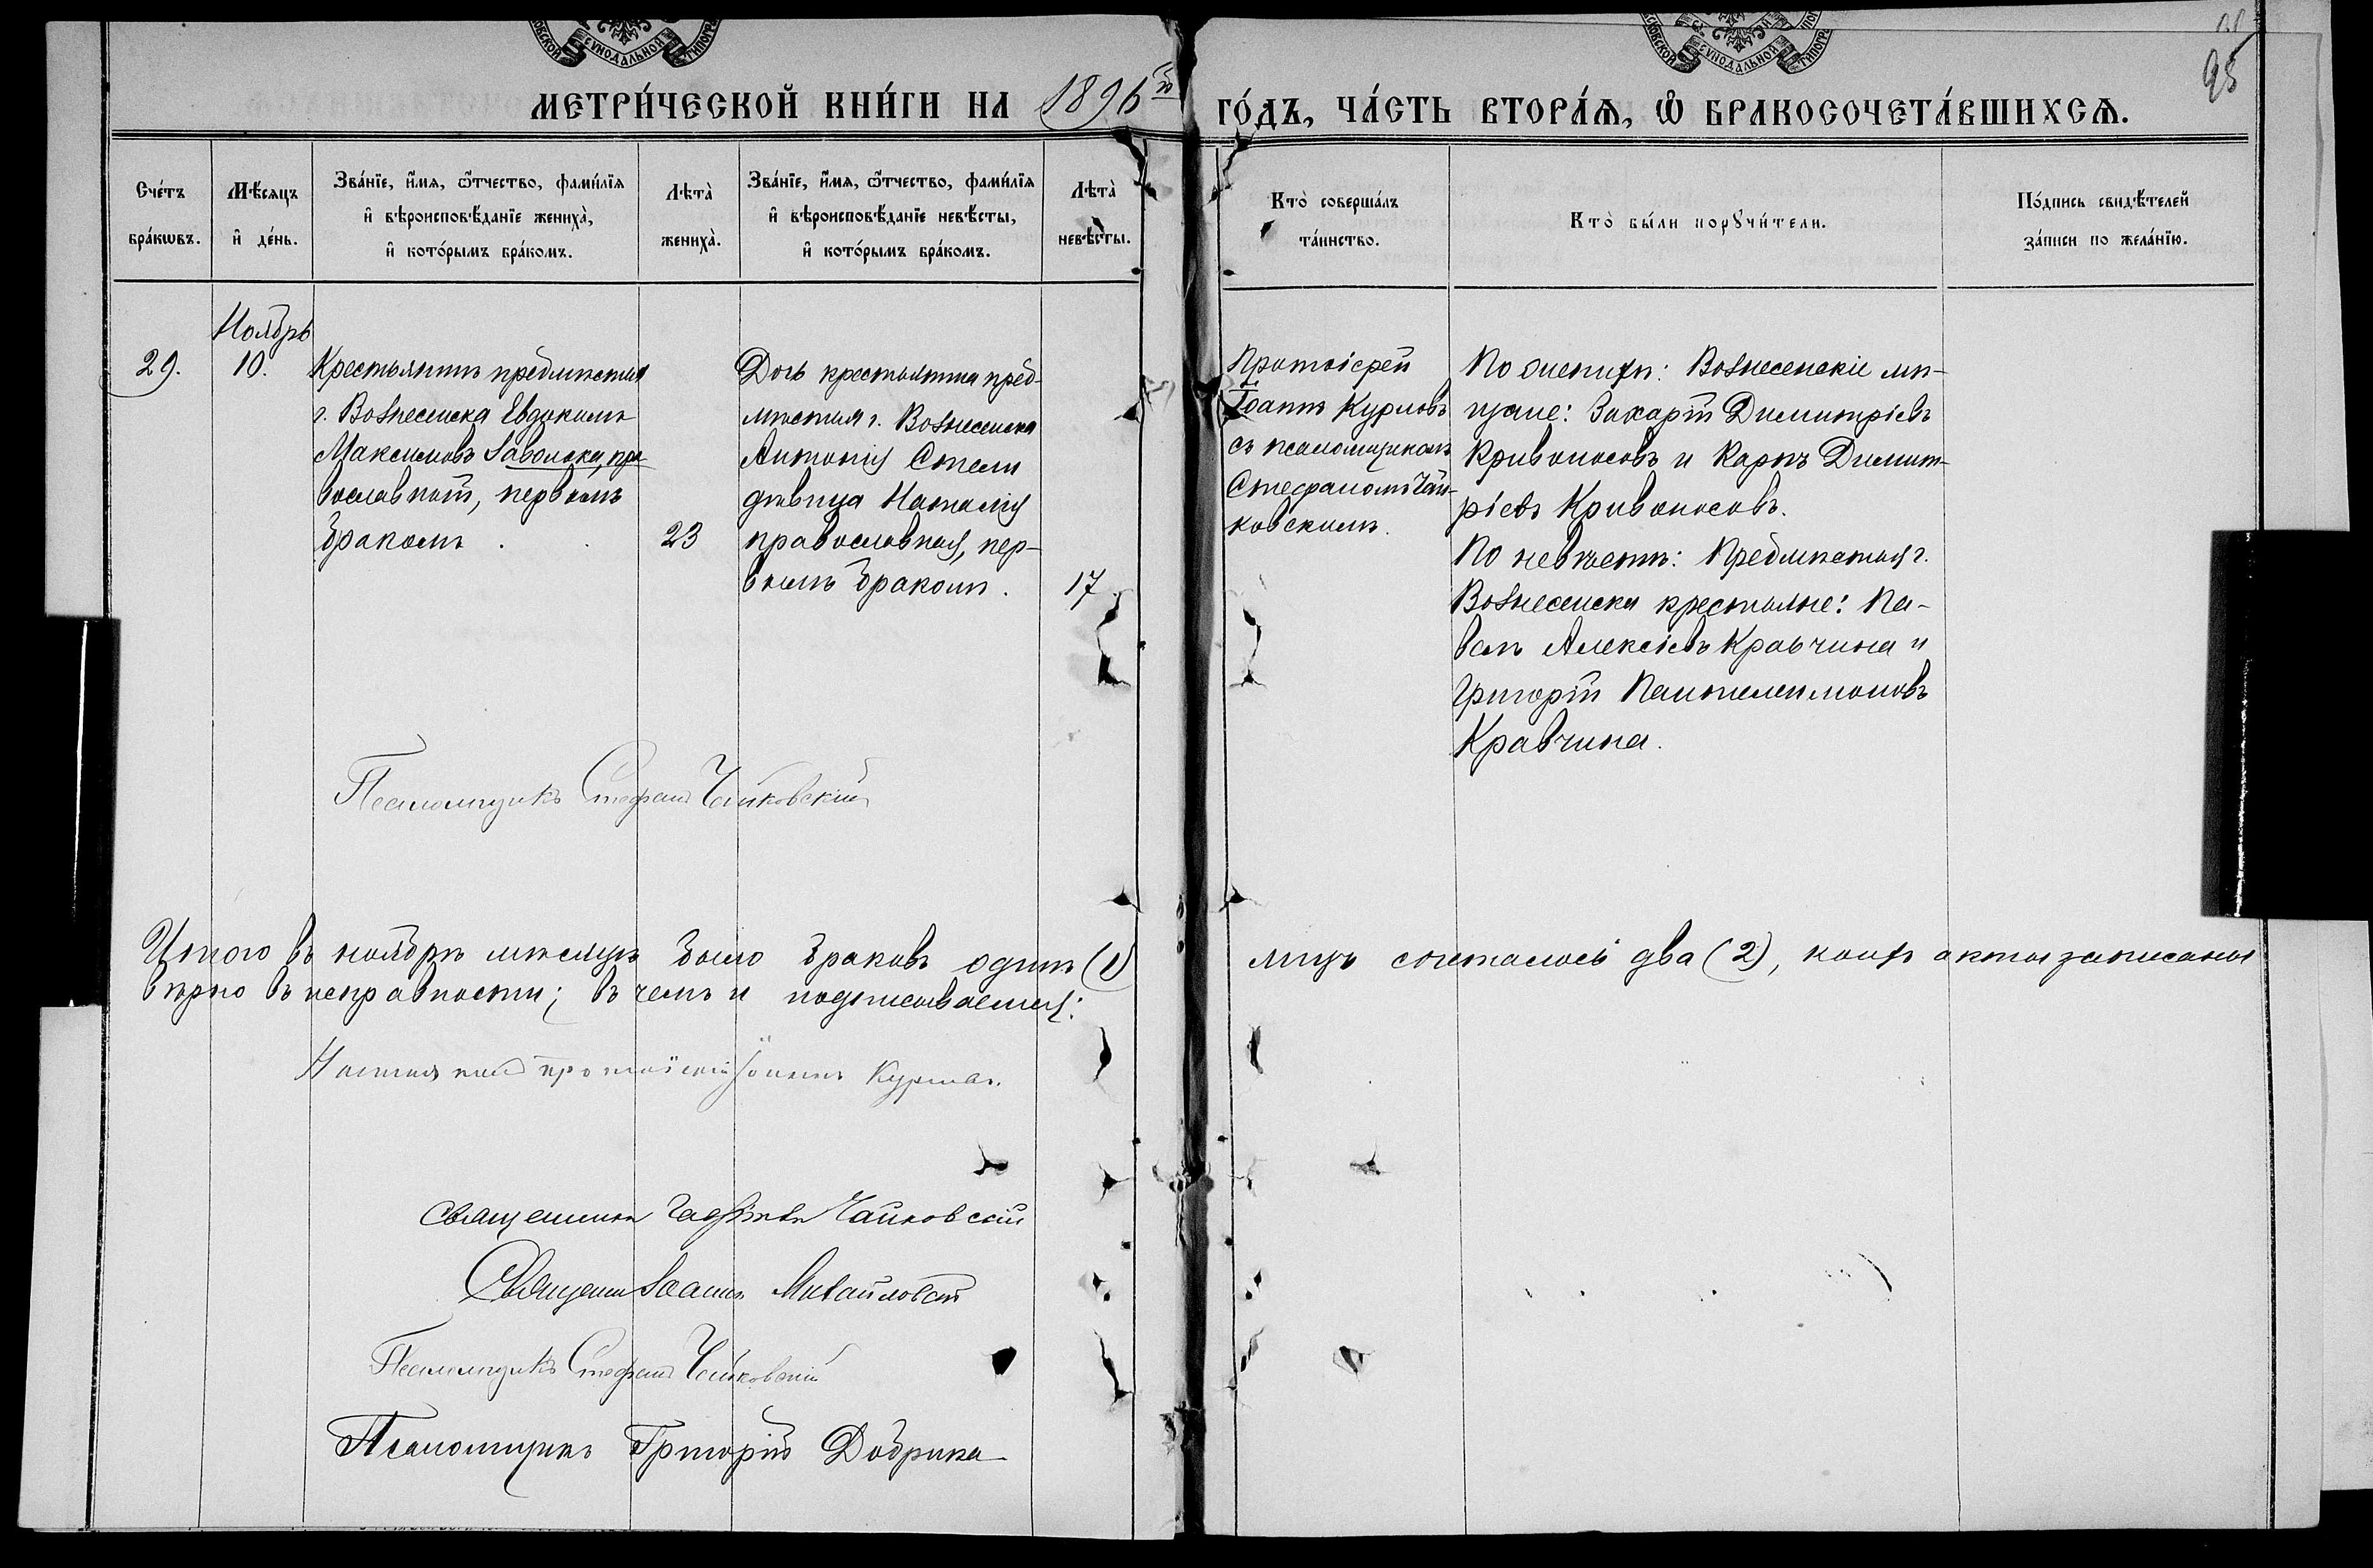 СѴНОДАЛЬНОЙ
СѴНОДАЛЬНОЙ
95
МЕТРИ́ЧЕСКОЙ КНИ́ГИ НА 1896й ГО́ДЪ, ЧА́СТЬ ВТОРА́Ѧ, Ѽ БРАКОСОЧЕТА́ВШИХСѦ.
Сче́тъ
бра́кѡвъ.
Мѣ́сяцъ
и҆ де́нь.
Зва́нїе, и҆́мя, ѻ҆́тчество, фами́лїя
и҆ вѣроисповѣ́данїе жениха̀,
и҆ кото́рымъ бра́комъ.
Лѣта̀
жениха̀.
Зва́нїе, и҆́мя, ѻ҆́тчество, фами́лїя
и҆ вѣроисповѣ́данїе невѣ́сты,
и҆ кото́рымъ бра́комъ.
Лѣта̀
невѣ́сты.
Кто̀ соверша́лъ
та́инство.
Кто̀ бы́ли порꙋчи́тели.
По́дпись свидѣ́телей
за́писи по жела́нїю.
29.
Ноябрь
10.
Крестьянинъ предмѣстья
г. Вознесенска Евдокимъ
Максимовъ Заволока, пра
вославный, первымъ
бракомъ.
23
Дочь крестьянина пред-
мѣстья г. Вознесенска
Антонія Стели
дѣвица Наталія
православная, пер-
вымъ бракомъ.
17
Протоіерей
Іоаннъ Курловъ
съ псаломщикомъ
Стефаномъ Чай-
ковскимъ.
По женихѣ: Вознесенскіе мѣ-
щане: Захарій Димитріевъ
Кривоносовъ и Карпъ Димит-
ріевъ Кривоносовъ.
По невѣстѣ: Предмѣстья г.
Вознесенска крестьяне: Па-
велъ Алексіевъ Кравчина и
Григорій Пантелеимоновъ
Кравчина.
Псаломщикъ Стефанъ Чайковскій
Итого въ ноябрѣ мѣсяцѣ было браковъ одинъ (1) лицъ сочеталось два (2), коихъ акты записаны
вѣрно въ исправности; въ чемъ и подписываемся:
Настоятель протоіерей Іоаннъ Курловъ.
Священникъ Чайковскій
Священникъ Іоаннъ Михайловскій
Псаломщикъ Стефанъ Чайковскій
Псаломщикъ Григорій Добрина